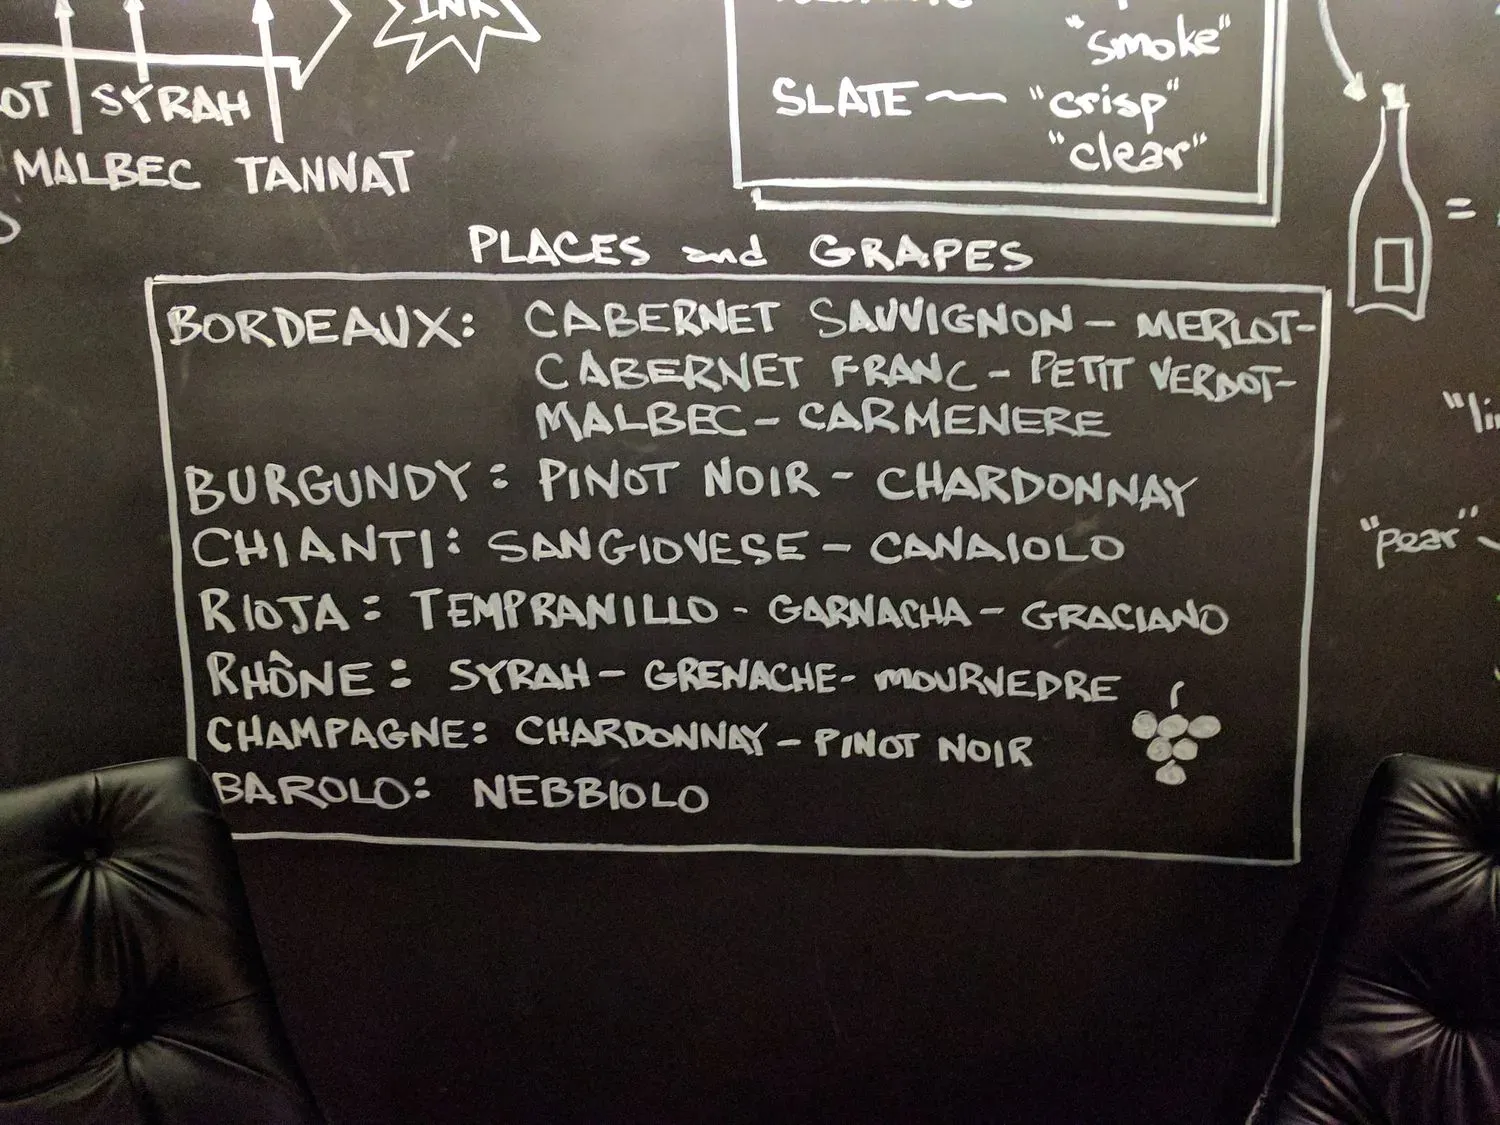 INK
SYRAH
MALBEC TANNAT
"smoke"
SLATE — "crisp"
"clear"
=
PLACES and GRAPES
BORDEAUX: CABERNET SAUVIGNON - MERLOT-
CABERNET FRANC - PETIT VERDOT-
MALBEC - CARMENERE
BURGUNDY: PINOT NOIR - CHARDONNAY
CHIANTI: SANGIOVESE - CANAIOLO
RIOJA: TEMPRANILLO - GARNACHA - GRACIANO
RHÔNE: SYRAH - GRENACHE - MOURVEDRE
CHAMPAGNE: CHARDONNAY - PINOT NOIR
BAROLO: NEBBIOLO
"pear"